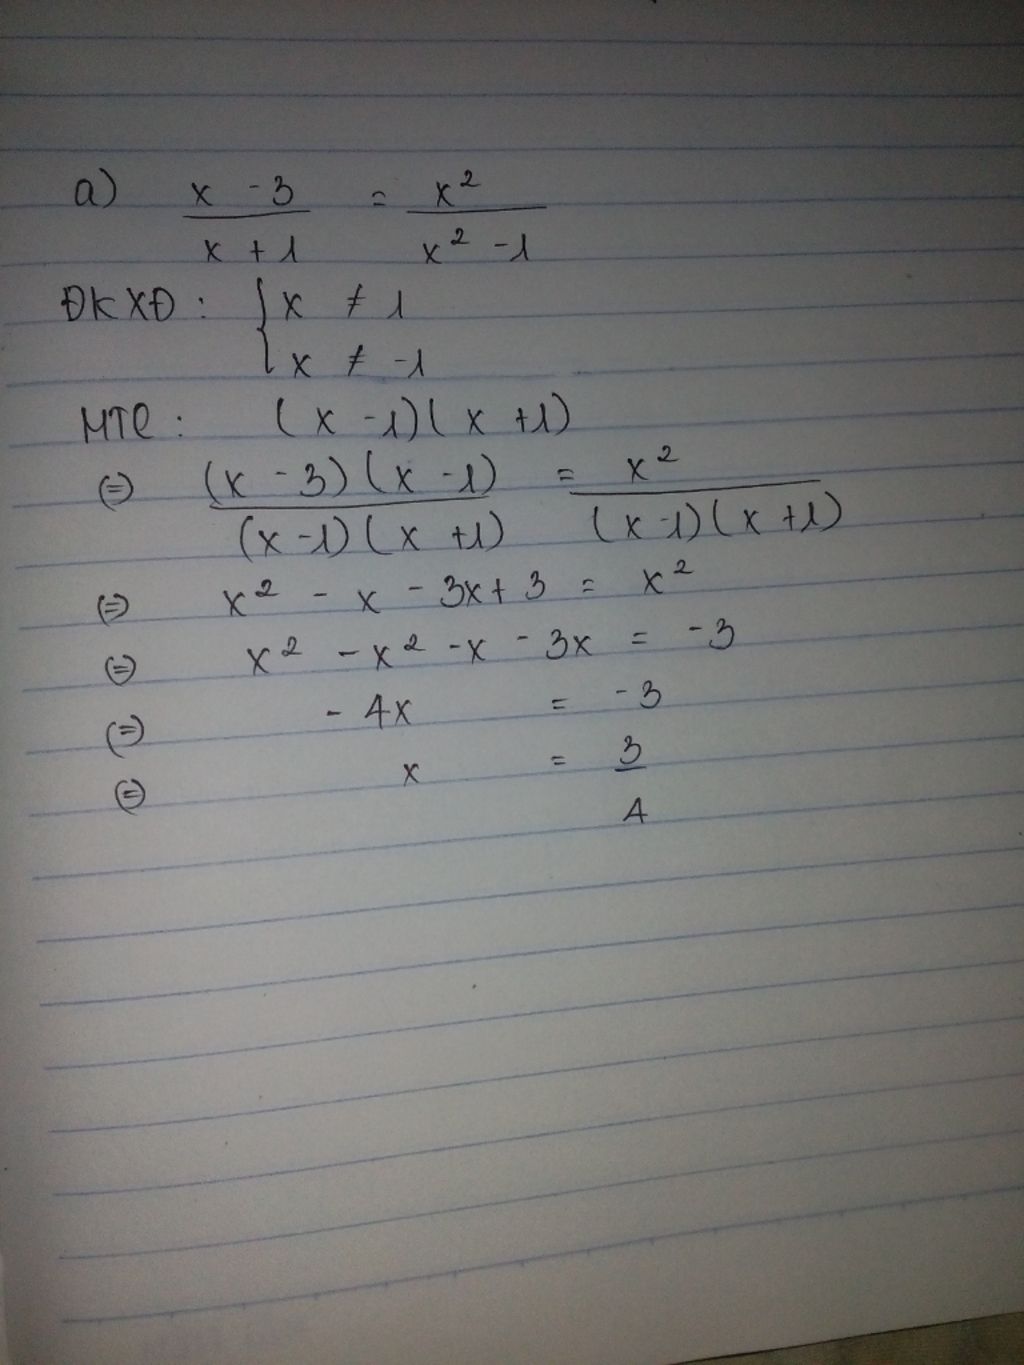 a) x - 3 / x + 1 = x² / x² - 1
ĐKXĐ : { x ≠ 1
x ≠ -1
MTC : (x - 1)(x + 1)
(=) (x - 3)(x - 1) / (x - 1)(x + 1) = x² / (x - 1)(x + 1)
(=) x² - x - 3x + 3 = x²
(=) x² - x² - x - 3x = -3
(=) - 4x = -3
(=) x = 3 / 4